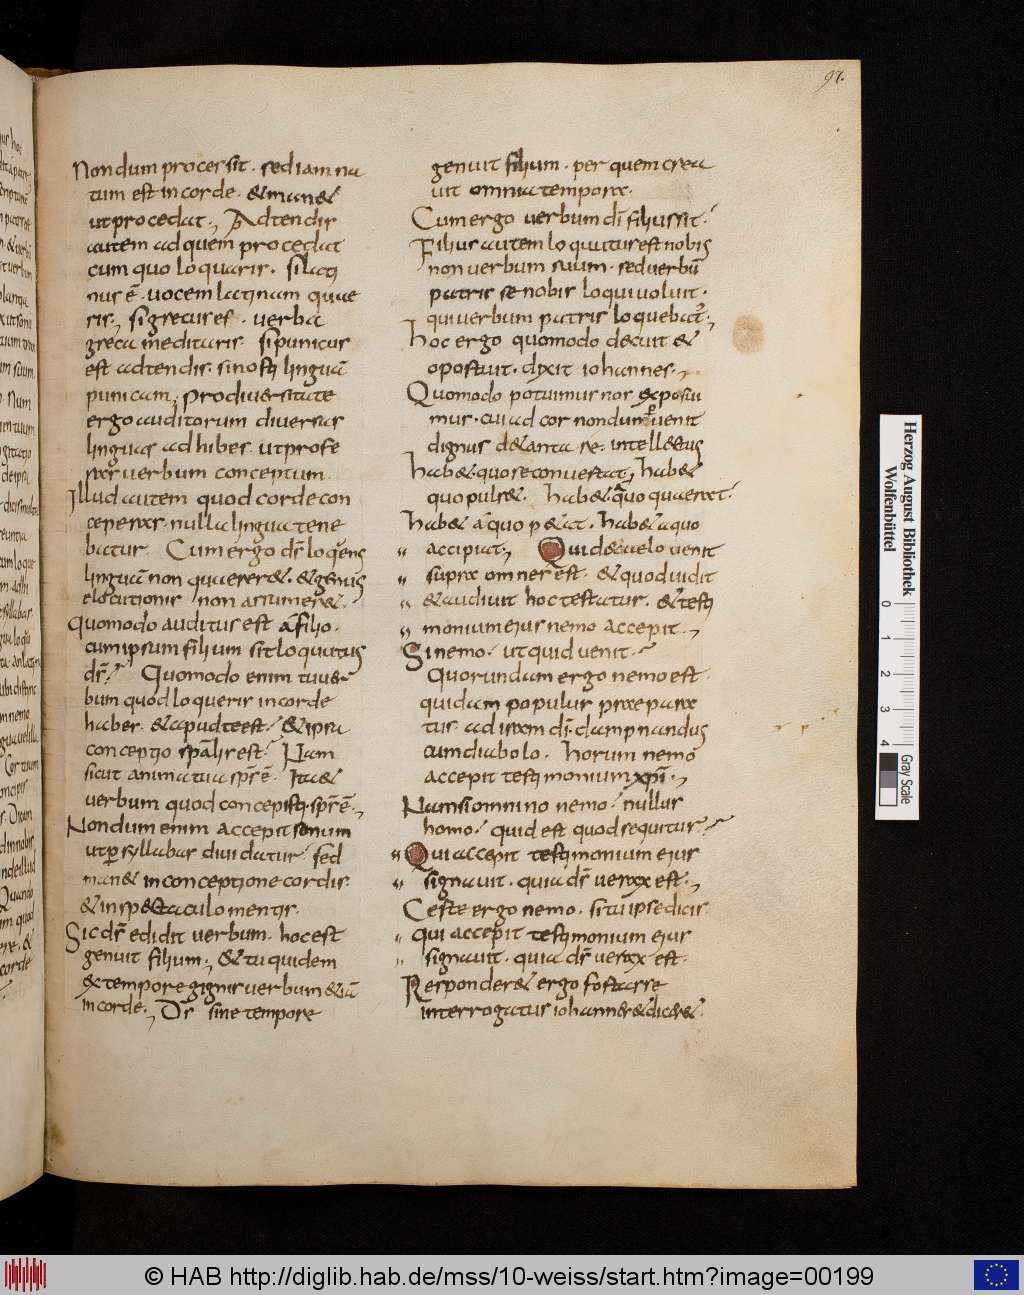 97.
Nondum processit . sed iam na
tum est in corde . & man&
ut procedat . Adtendis
autem ad quem procedat
cum quo loquaris . si lati
nus ē . uocem latinam quae
ris . si grecus es . uerba
greca meditaris . si punicus
est adtendis . si nosti linguā
punicam . pro diuersitate
ergo auditorum diuersas
linguas adhibes . ut profe
ras uerbum conceptum
Illud autem quod corde con
ceperas . nulla lingua tene
batur . Cum ergo d̄s loquens
linguā non quaerer& . & genus
elocutionis non assumer& .
Quomodo auditus est a filio .
cum ipsum filium sit loquutus
d̄s . Quomodo enim tu uer
bum quod loqueris in corde
habes . & apud te est . & ipsa
conceptio sp̄alis est . Nam
sicut anima tua sp̄s ē . Ita &
uerbum quod concepisti . sp̄s ē .
Nondum enim accepit sonum
ut p syllabas diuidatur . sed
man& in conceptione cordis .
& in speculo mentis .
Sic d̄s edidit uerbum . hoc est
genuit filium . & tu quidem
ex tempore gignis uerbum &iā
in corde . D̄s sine tempore
genuit filium . per quem crea
uit omnia tempora .
Cum ergo uerbum d̄i filius sit .
Filius autem loquutus est nobis
non uerbum suum . sed uerbū
patris se nobis loqui uoluit .
qui uerbum patris loquebat' .
Hoc ergo quomodo decuit &
oportuit . dixit iohannes .
Quomodo potuimus nos exposui
mus . cui ad cor nondum peruenit
dignus de tanta re . intellectus
hab& quo se conuertat . hab&
quo puls& . hab& a quo quaerat .
hab& a quo p&at . hab& a quo
accipiat . Qui de caelo uenit
supra omnes est . & quod uidit
& audiuit hoc testatur . & testi
monium eius nemo accepit .
Si nemo . ut quid uenit .
Quorundam ergo nemo est .
quidam populus praepara
tus . ad iram d̄i . damnandus
cum diabolo . horum nemo
accepit testimonium xp̄i .
Nam si omnino nemo . nullus
homo . quid est quod sequitur .
Qui accepit testimonium eius
signauit . quia d̄s uerax est .
Certe ergo nemo . si tu ipse dicis
qui accepit testimonium eius
signauit . quia d̄s uerax est .
Responder& ergo fortasse
interrogatus iohannes & dicer& .
Herzog August Bibliothek
Wolfenbüttel
0 1 2 3 4
Gray Scale
© HAB http://diglib.hab.de/mss/10-weiss/start.htm?image=00199